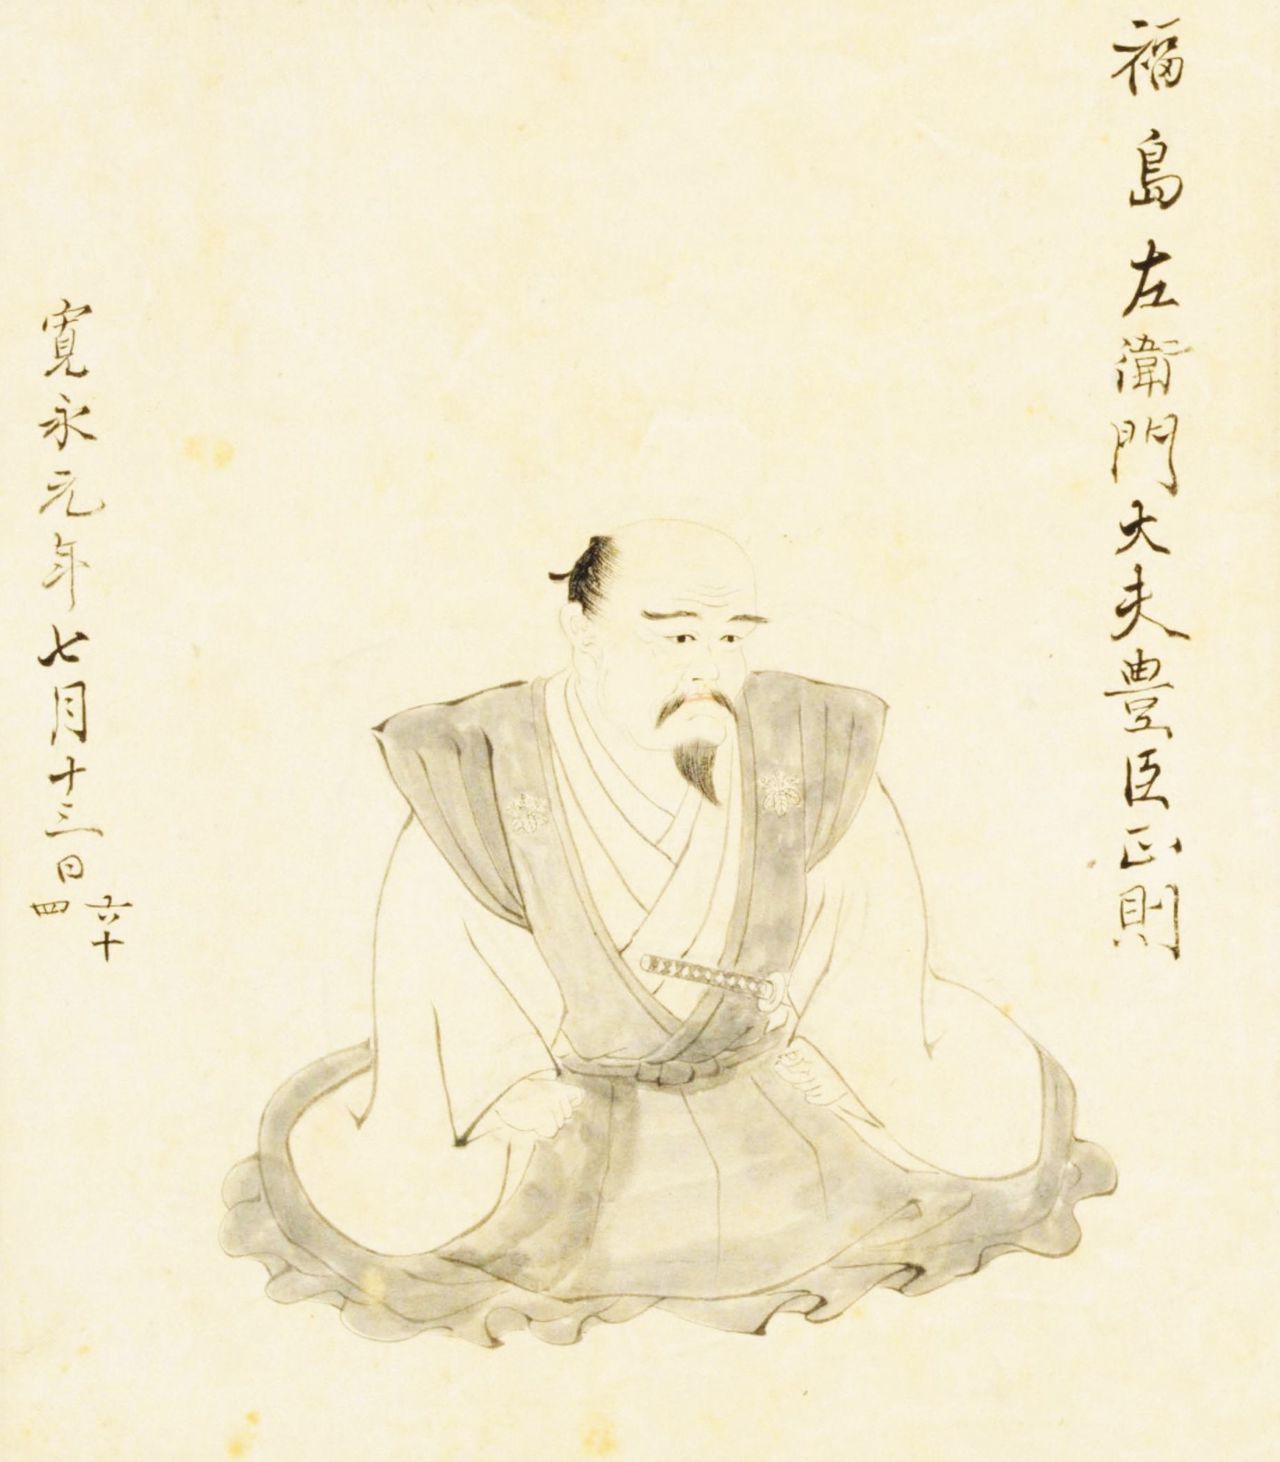 福島左衛門大夫豊臣正則
寛永元年七月十三日
六十四